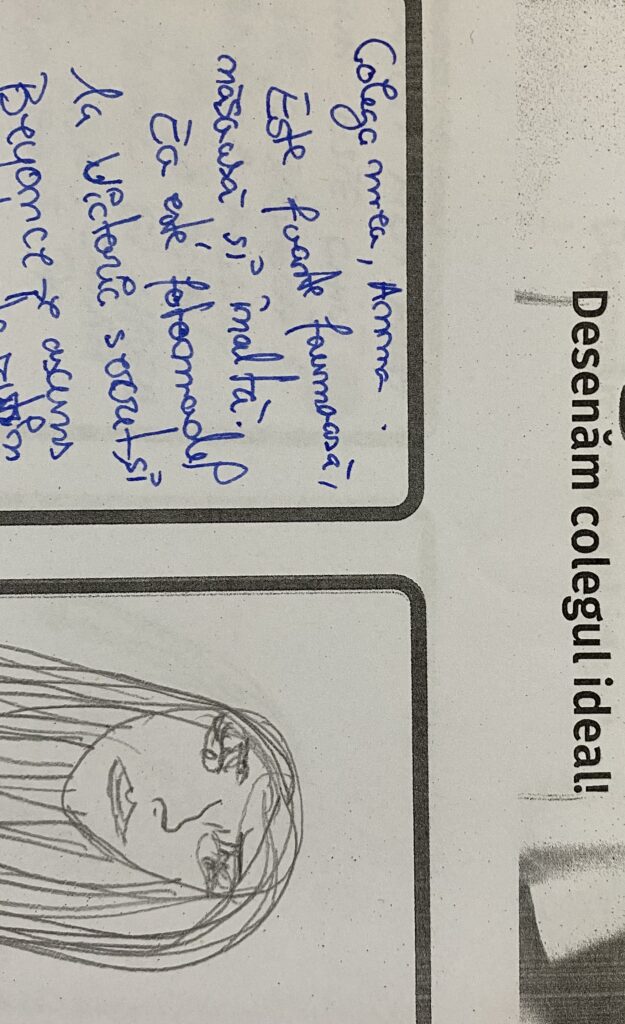 Desenăm colegul ideal!
Colega mea, Anna.
Este foarte frumoasă,
năsoasă și înaltă.
Ea este fotomodel
la Victoria secret și
Beyonce se ascuns